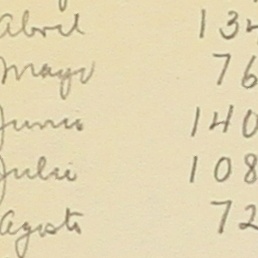 Abril 134
Mayo 76
Junio 140
Julio 108
Agosto 72